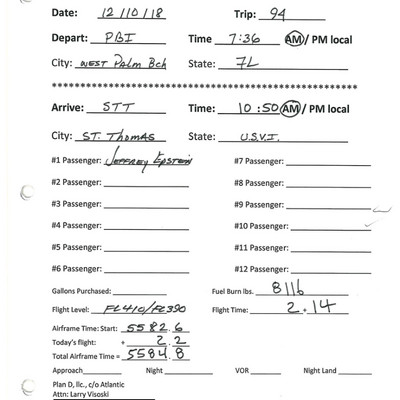 Date: 12/10/18 Trip: 94
Depart: PBI Time 7:36 AM / PM local
City: WEST PALM BCH State: FL
************************************************************
Arrive: STT Time: 10:50 AM / PM local
City: ST. THOMAS State: U.S.V.I.
#1 Passenger: JEFFREY EPSTEIN #7 Passenger:
#2 Passenger: #8 Passenger:
#3 Passenger: #9 Passenger:
#4 Passenger: #10 Passenger:
#5 Passenger: #11 Passenger:
#6 Passenger: #12 Passenger:
Gallons Purchased: Fuel Burn lbs. 8116
Flight Level: FL410/FL390 Flight Time: 2+14
Airframe Time: Start: 5582.6
Today's flight: + 2.2
Total Airframe Time = 5584.8
Approach Night VOR Night Land
Plan D, llc., c/o Atlantic
Attn: Larry Visoski